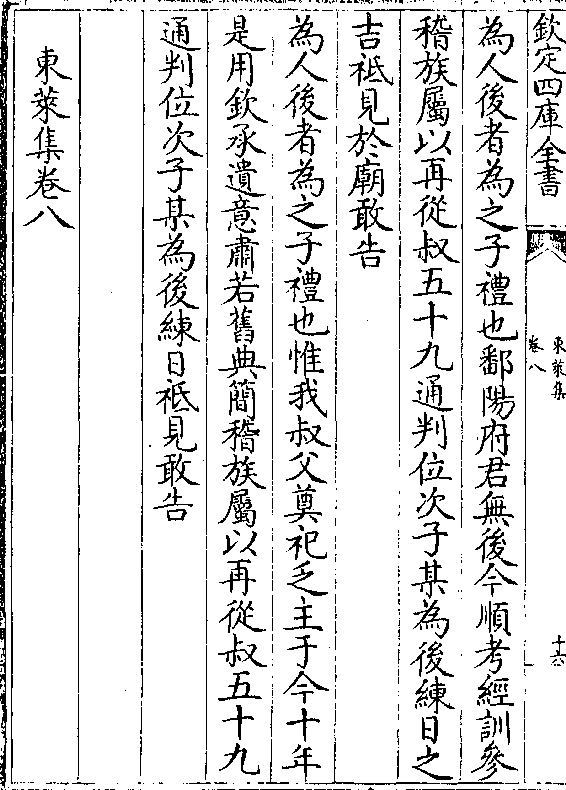 欽定四庫全書
東萊集
卷八
十六
為人後者為之子禮也鄱陽府君無後今順考經訓參
稽族屬以再從叔五十九通判位次子某為後練日之
吉祗見於廟敢告
為人後者為之子禮也惟我叔父奠祀乏主于今十年
是用欽承遺意肅若舊典簡稽族屬以再從叔五十九
通判位次子某為後練日祗見敢告
東萊集卷八